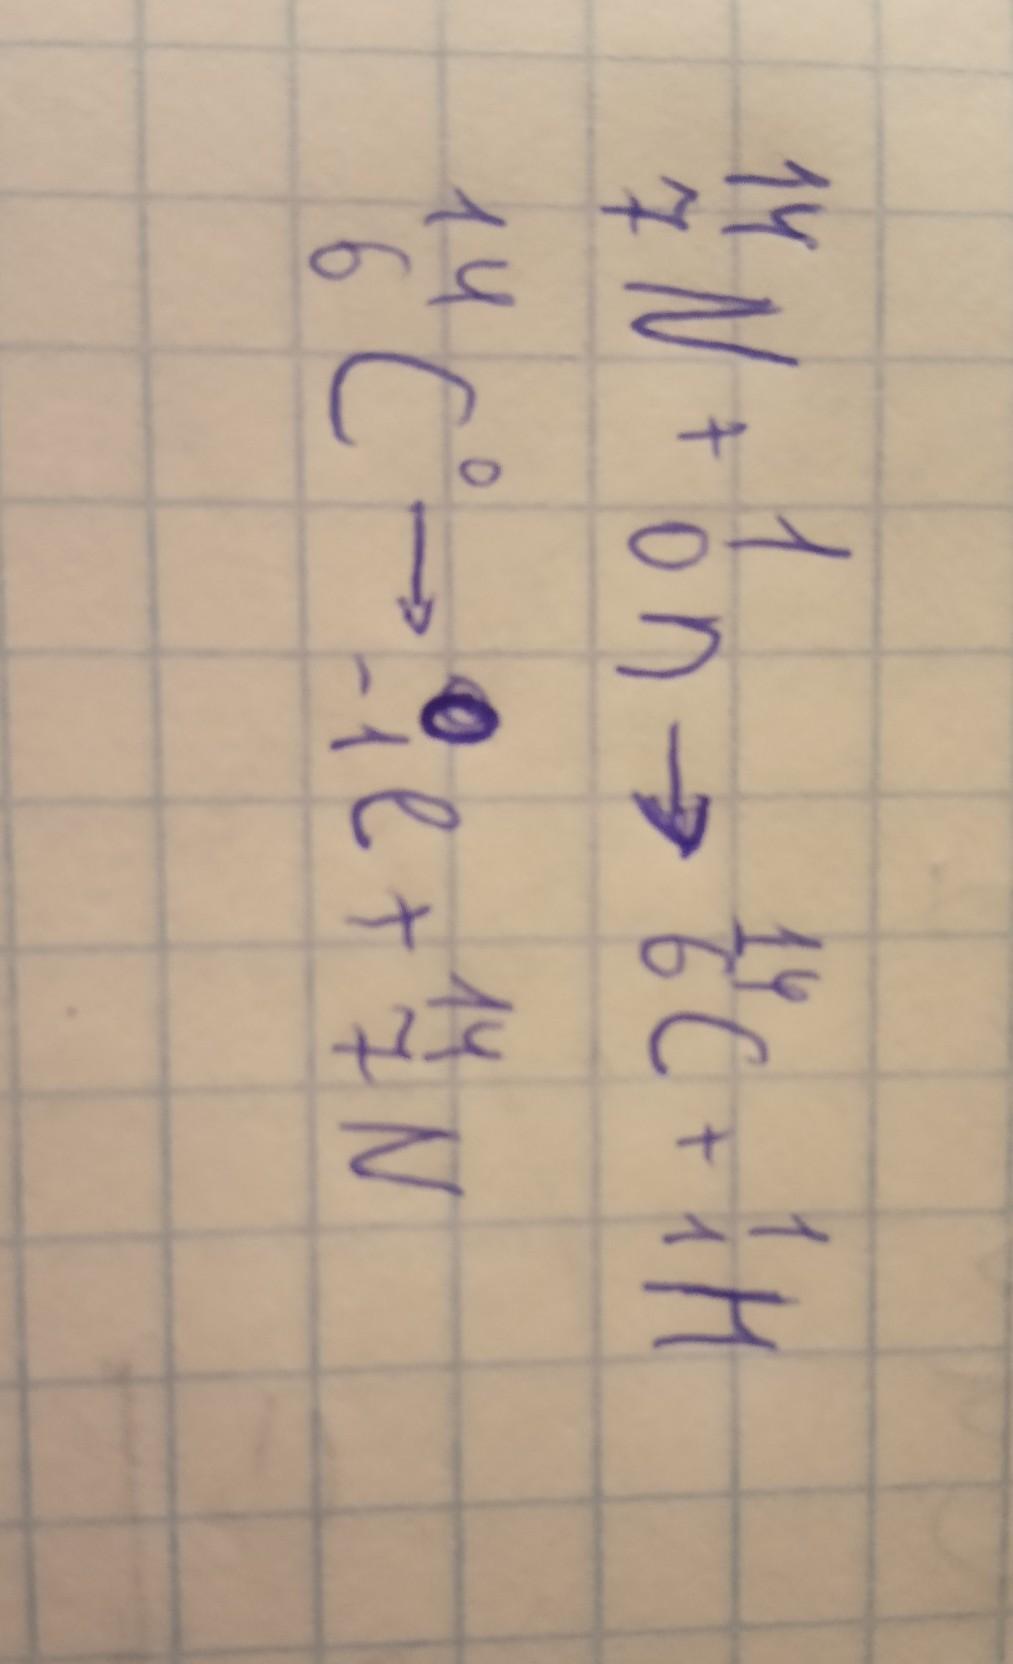 ¹⁴₇N + ¹₀n → ¹⁴₆C + ¹₁H
¹⁴₆C⁰ → ⁰₋₁e + ¹⁴₇N